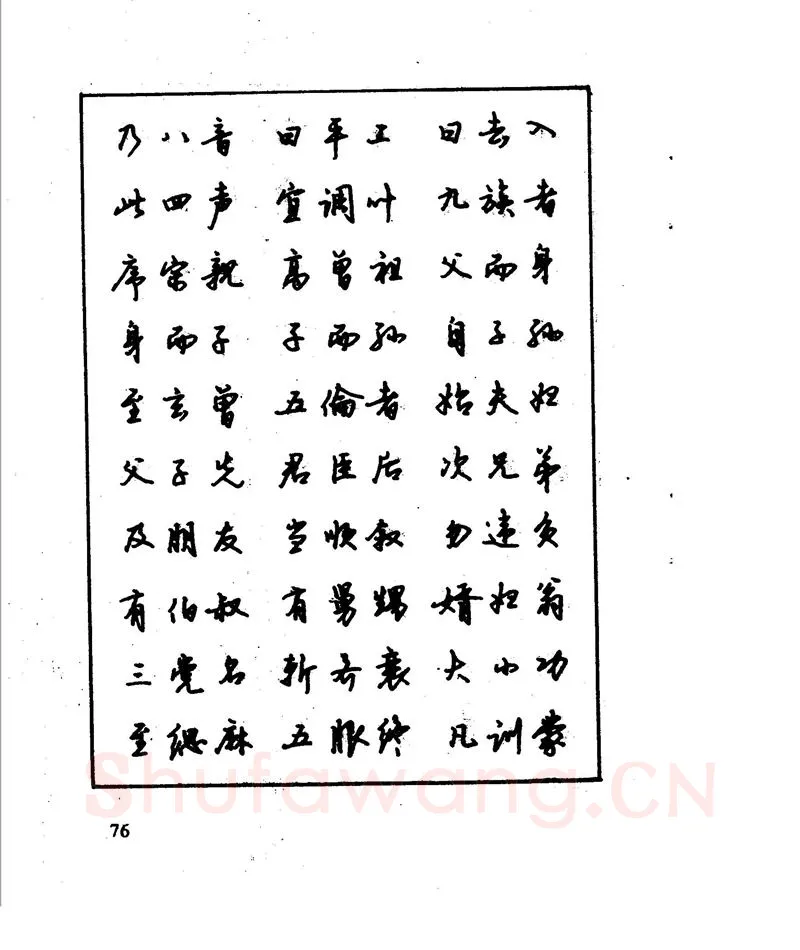 乃八音 曰平上 曰去入
此四声 宜调叶 九族者
序宗亲 高曾祖 父而身
身而子 子而孙 自子孙
至玄曾 五伦者 始夫妇
父子先 君臣后 次兄弟
及朋友 当顺叙 勿违负
有伯叔 有舅甥 婿妇翁
三党名 斩齐衰 大小功
至缌麻 五服终 凡训蒙
76
Shufawang.CN